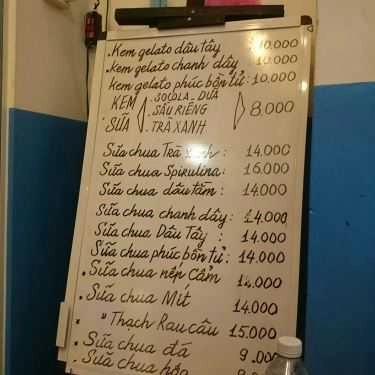 . Kem gelato dâu tây : 10.000
. Kem gelato chanh dây 10.000
Kem gelato phúc bồn tử: 10.000
KEM SỮA . SOCOLA - DỪA 8.000
. SẦU RIÊNG
. TRÀ XANH
Sữa chua Trà xanh : 14.000
Sữa chua Spirulina: 16.000
Sữa chua dâu tằm : 14.000
Sữa chua chanh dây: 14.000
Sữa chua Dâu Tây : 14.000
Sữa chua phúc bồn tử: 14.000
. Sữa chua nếp Cẩm 14.000
. Sữa chua Mít 14.000
. " Thạch Rau câu 15.000
. Sữa chua đá 9.000
Sữa chua